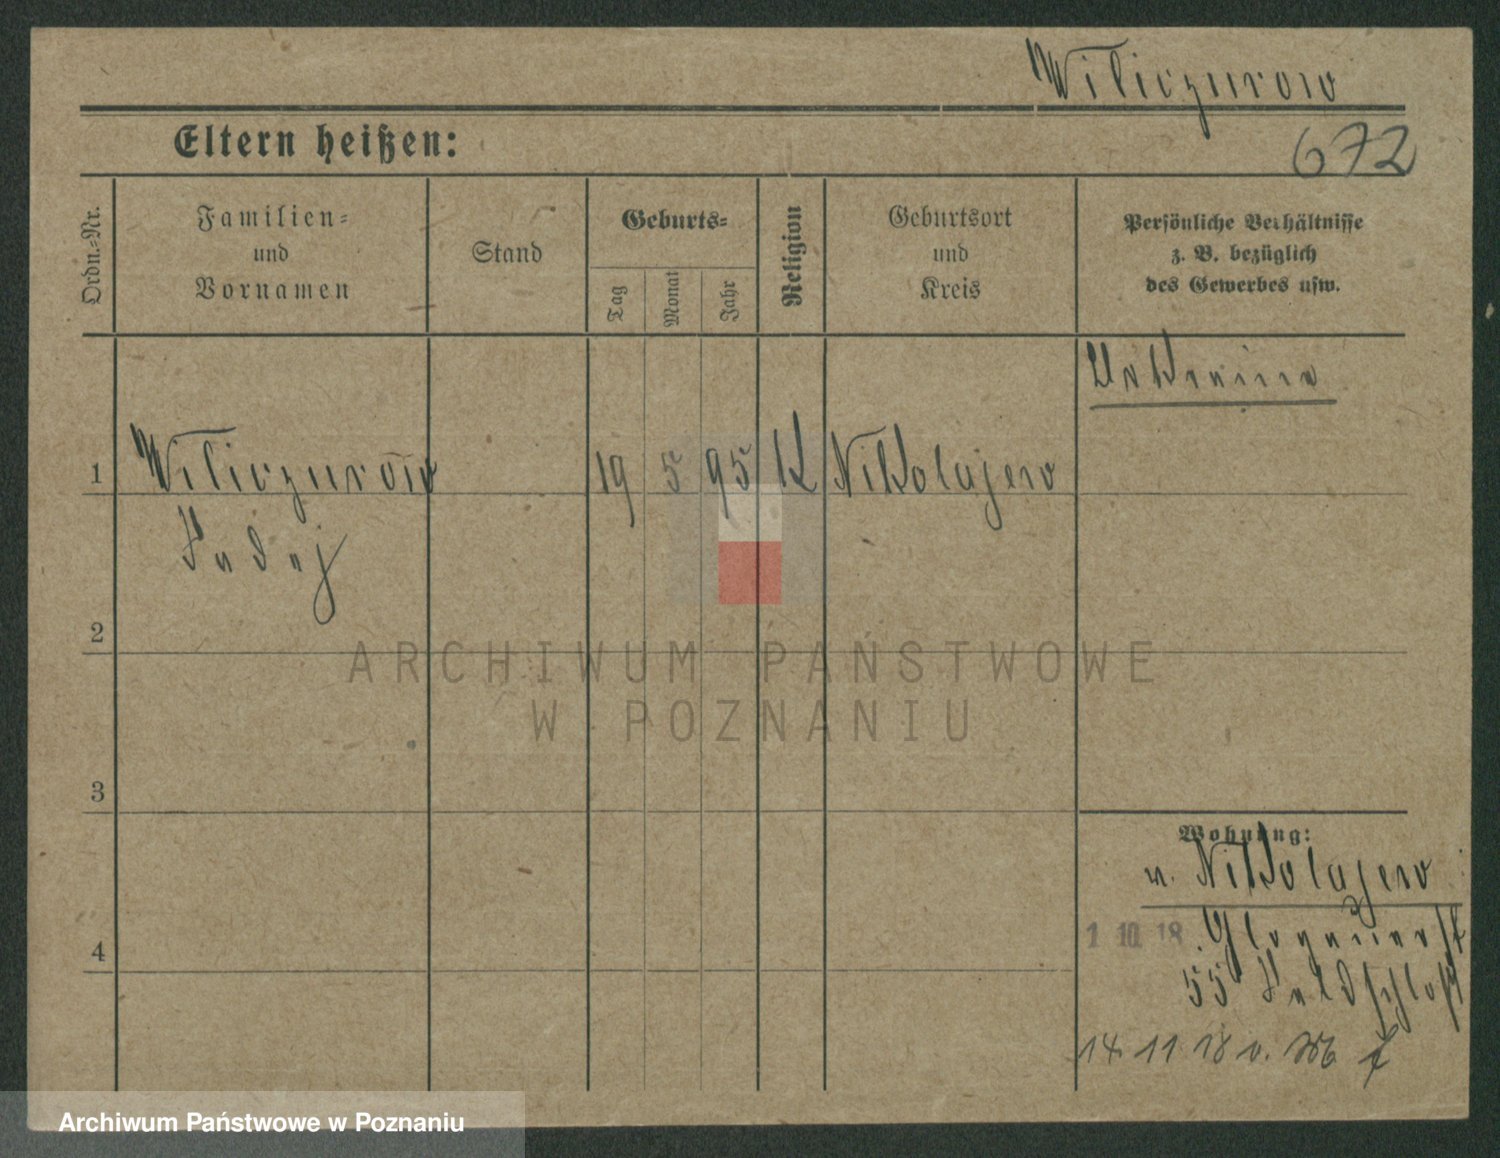 Wiliczurow
Eltern heißen:
672
Ordn.=Nr.
Familien=
und
Vornamen
Stand
Geburts=
Tag
Monat
Jahr
Religion
Geburtsort
und
Kreis
Persönliche Verhältnisse
z. B. bezüglich
des Gewerbes usw.
Ukraine
1 Wiliczurow 19 5 95 K Nikolajew
2
ARCHIWUM PAŃSTWOWE
W POZNANIU
3
Wohnung:
v. Nikolajew
1 10. 18. Glogauerst
55 Feldschloß
4
14 11 18 v.
Archiwum Państwowe w Poznaniu